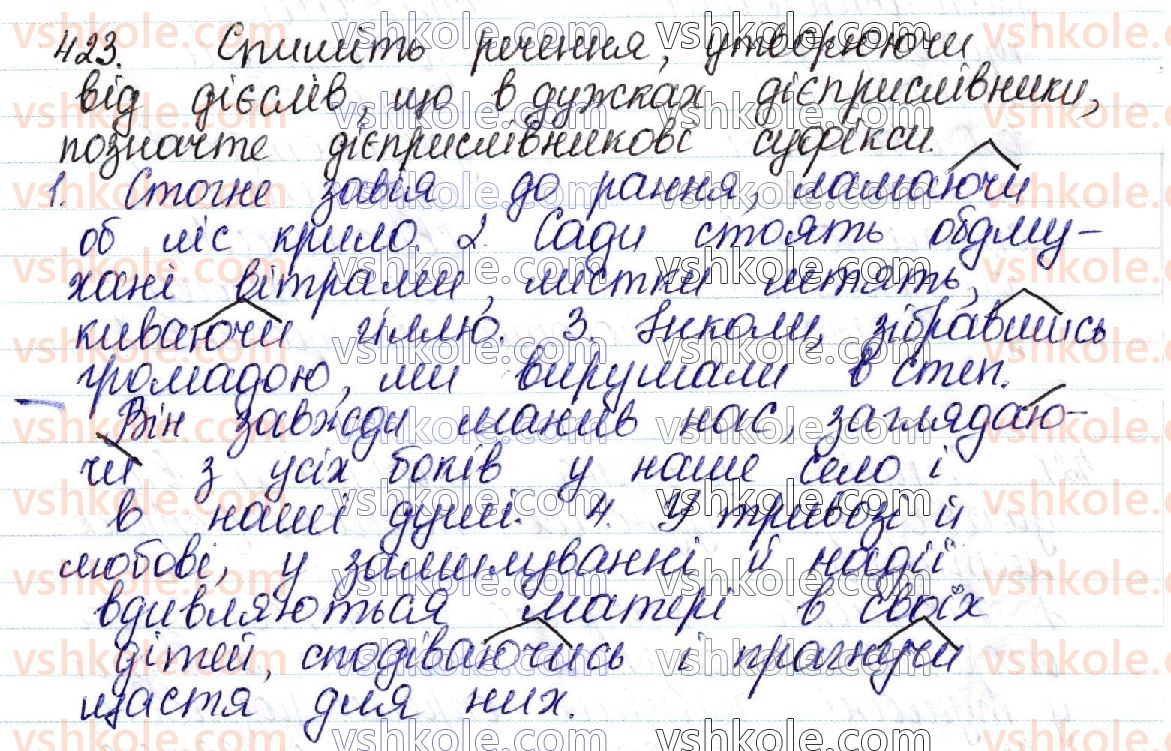 423. Спишіть речення, утворюючи
від дієслів, що в дужках дієприслівники,
позначте дієприслівникові суфікси.
1. Стогне завія до рання, ламаючи
об ліс крило. 2. Сади стоять обдму-
хані вітрами, листки летять,
киваючи гіллю. 3. Інколи, зібравшись
громадою, ми вирушали в степ.
Він завжди манив нас, заглядаю-
чи з усіх боків у наше село і
в наші душі. 4. У тривозі й
любові, у замилуванні й надії
вдивляються матері в своїх
дітей, сподіваючись і прагнучи
щастя для них.